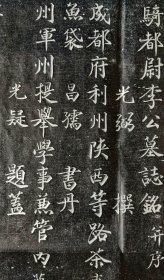 騎都尉李公墓誌銘 并序
光弼 撰
成都府利州陝西等路茶
魚袋 昌孺 書丹
州軍州提舉學事兼管内
光疑 題蓋